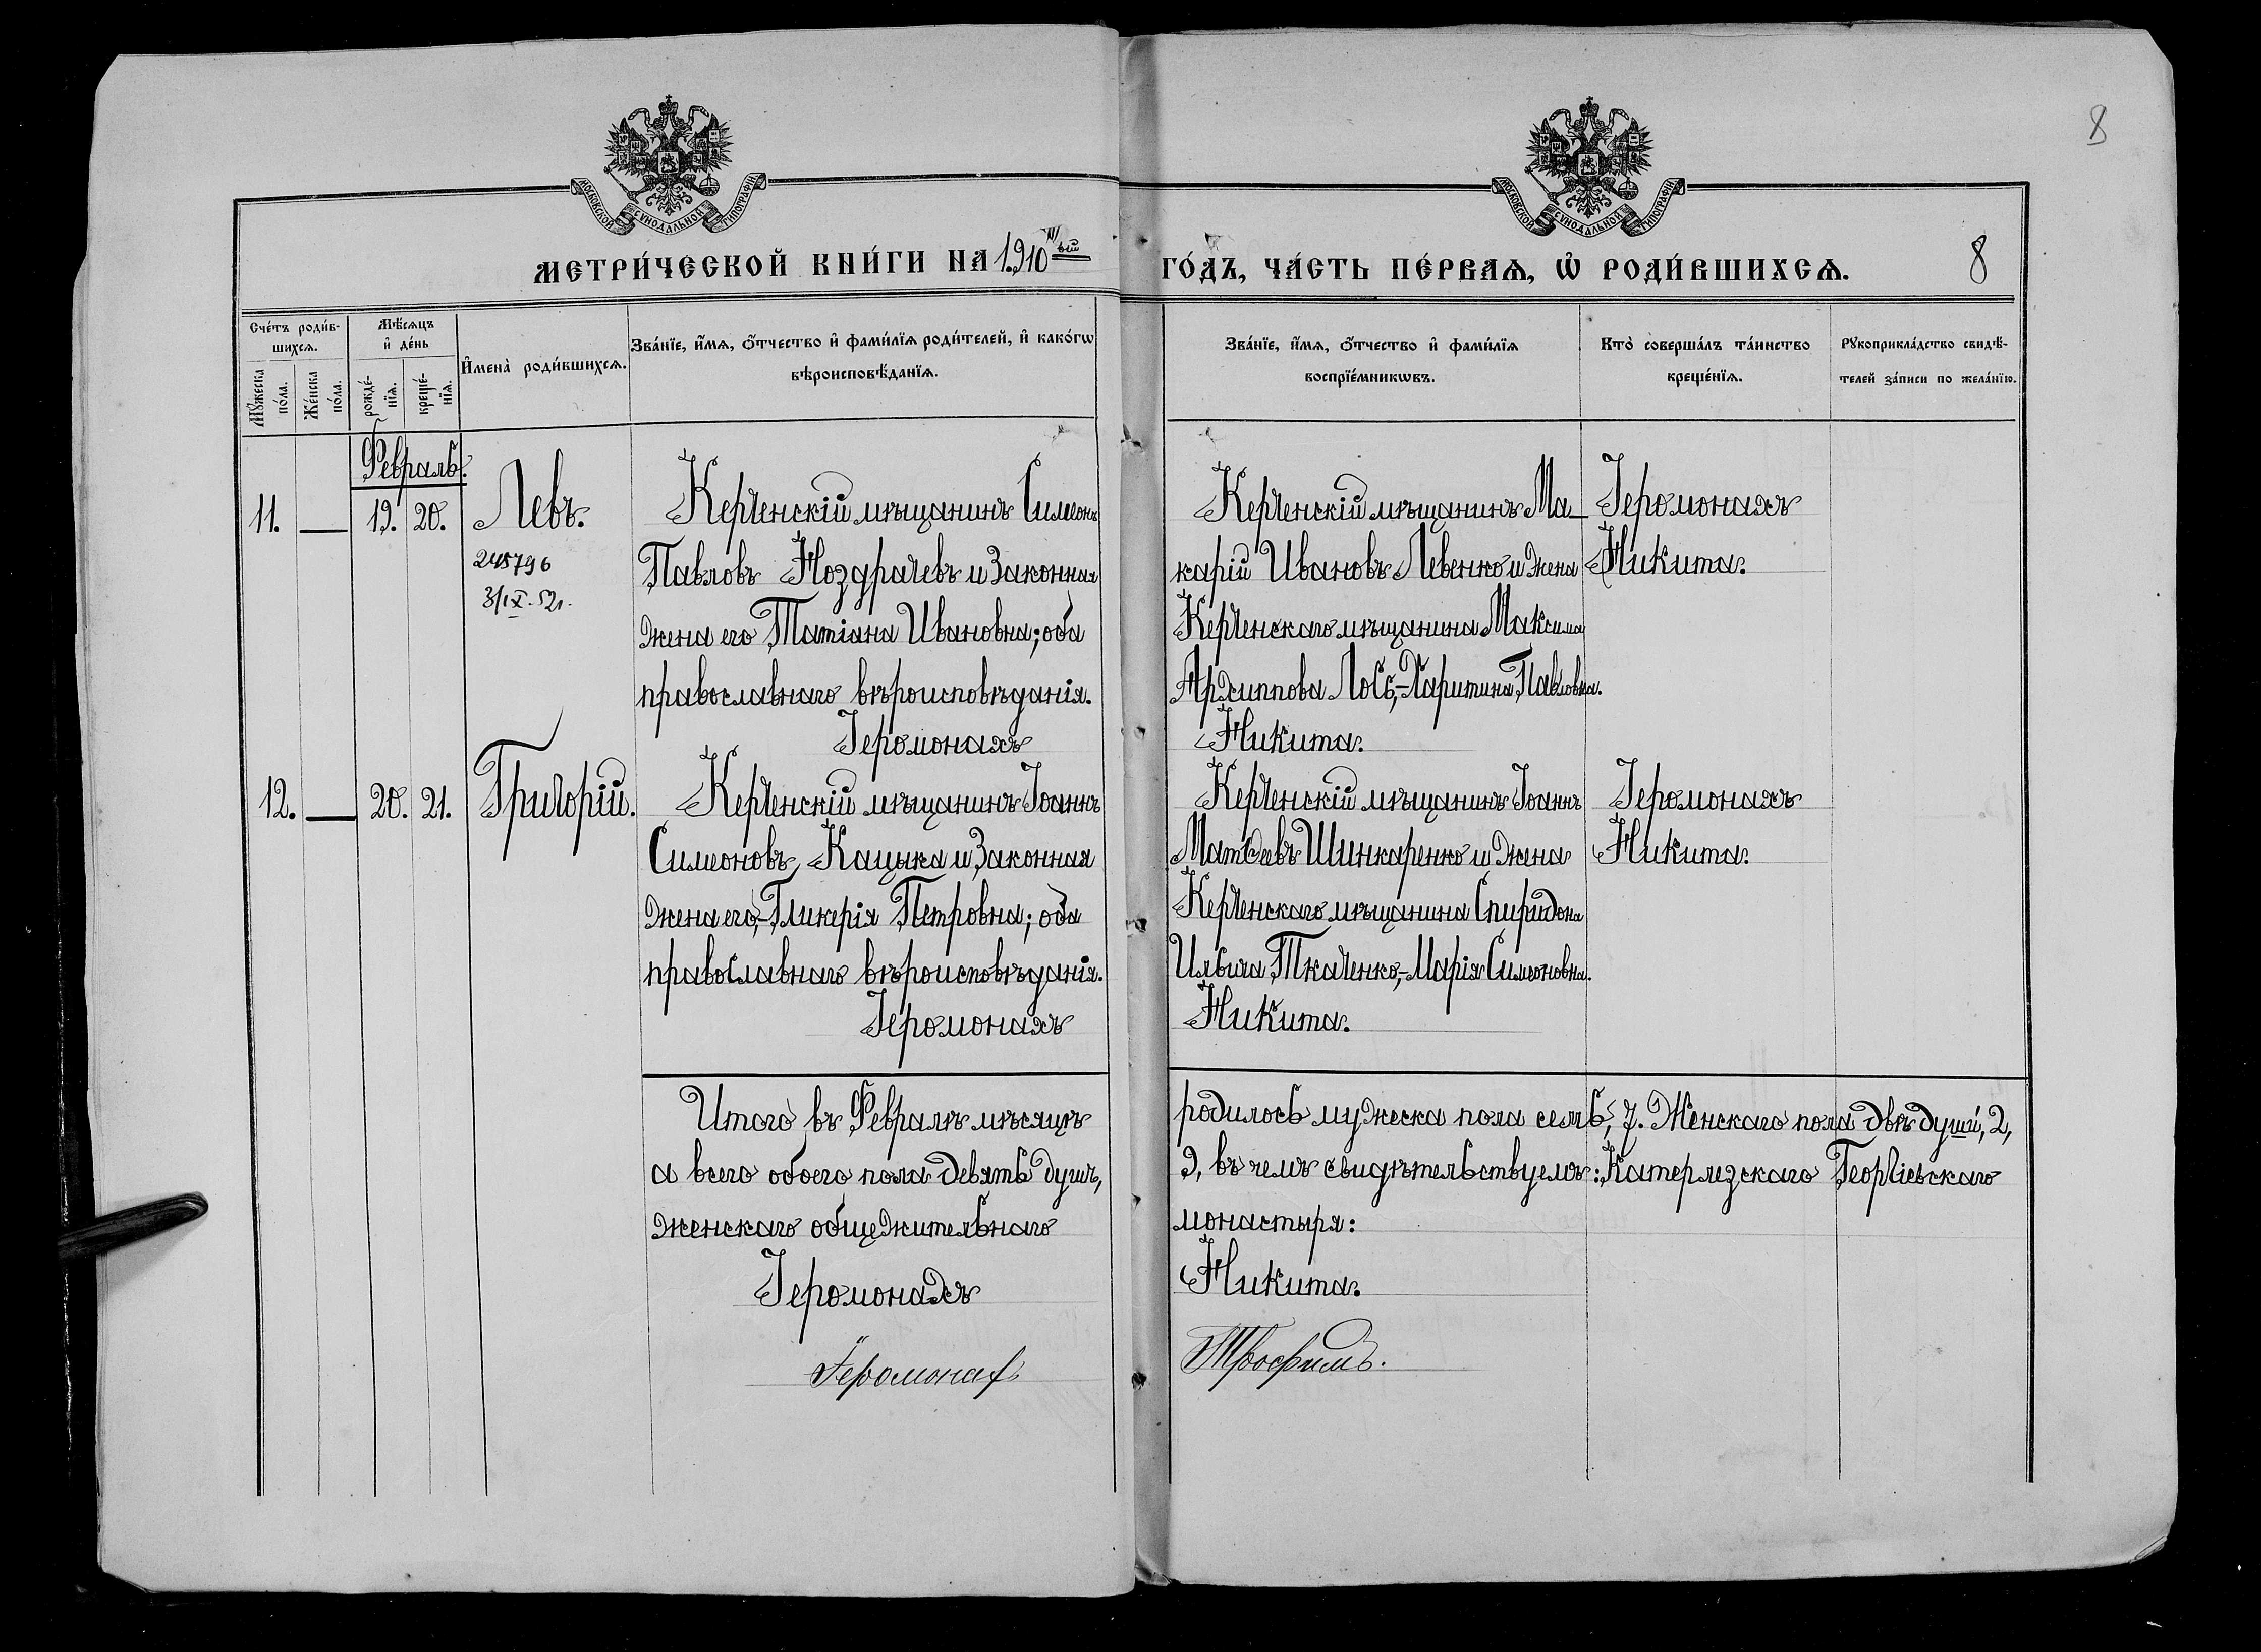 8
МОСКОВСКОЙ СѴНОДАЛЬНОЙ ТИПОГРАФІИ
МОСКОВСКОЙ СѴНОДАЛЬНОЙ ТИПОГРАФІИ
МЕТРИ́ЧЕСКОЙ КНИ́ГИ НА 1910ый ГО́ДЪ, ЧА́СТЬ ПЕ́РВАѦ, Ѡ҆ РОДИ́ВШИХСѦ. 8
Сче́тъ роди́в-
шихсѧ.
Мꙋ́жеска по́ла.
Же́нска по́ла.
Мѣ́сѧцъ
и҆ де́нь
рожде́-
нїѧ.
креще́-
нїѧ.
И҆мена̀ роди́вшихсѧ.
Зва́нїе, и҆́мѧ, ѻ҆́тчество и҆ фами́лїѧ роди́телей, и҆ како́гѡ
вѣроисповѣ́данїѧ.
Зва́нїе, и҆́мѧ, ѻ҆́тчество и҆ фами́лїѧ
воспрїе́мникѡвъ.
Кто̀ соверша́лъ та́инство
креще́нїѧ.
Рꙋкоприкла́дство свидѣ́-
телей за́писи по жела́нїю.
Февраль.
11. — 19. 20. Левъ.
248796
3/IX-52г.
Керченскій мѣщанинъ Симеонъ
Павловъ Ноздрачевъ и законная
жена его Татіана Ивановна; оба
православнаго вѣроисповѣданія.
Іеромонахъ
Керченскій мѣщанинъ Ма-
карій Ивановъ Левенко и жена
Керченскаго мѣщанина Максима
Архиппова Лобъ,-Харитина Павловна.
Никита.
Іеромонахъ
Никита.
12. — 20. 21. Григорій.
Керченскій мѣщанинъ Іоаннъ
Симеоновъ Кацыка и законная
жена его,-Гликерія Петровна; оба
православнаго вѣроисповѣданія.
Іеромонахъ
Керченскій мѣщанинъ Іоаннъ
Матѳеевъ Шинкаренко и жена
Керченскаго мѣщанина Спиридона
Ильича Ткаченко,-Марія Симеоновна.
Никита.
Іеромонахъ
Никита.
Итого въ Февралѣ мѣсяцѣ родилось мужеска пола семь, 7. Женскаго пола двѣ души, 2,
а всего обоего пола девять душъ, 9, въ чемъ свидѣтельствуемъ: Катерлезскаго Георгіевскаго
женскаго общежительнаго монастыря:
Іеромонахъ Никита.
Іеромонах Трофимъ.